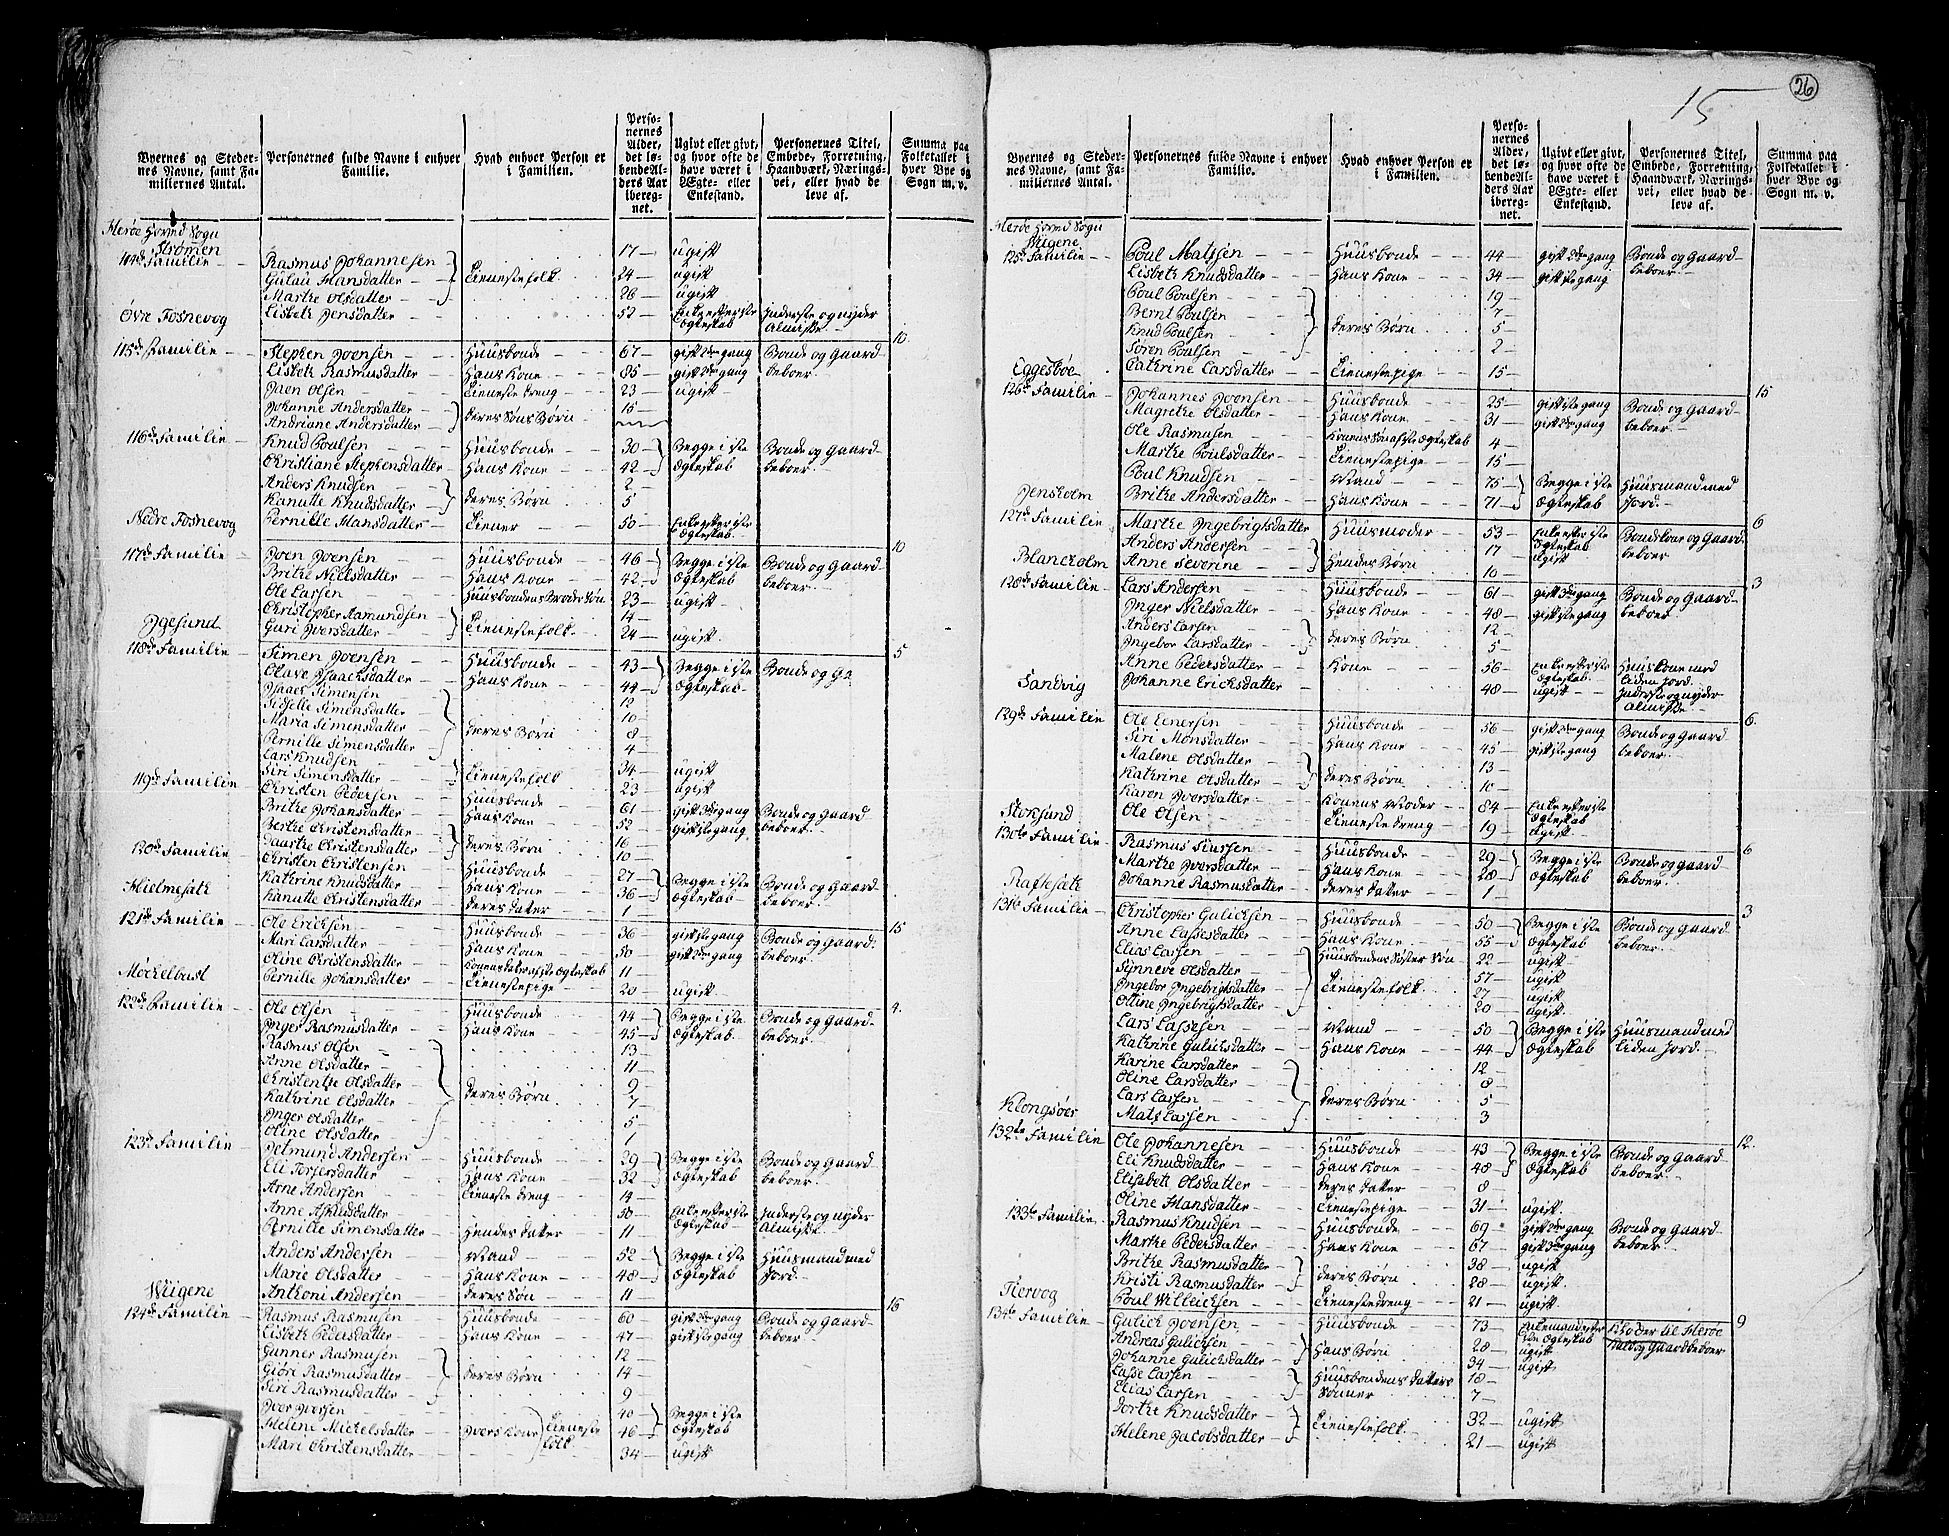 26
15
Byernes og Stedernes Navne, samt Familiernes Antal.
Personernes fulde Navne i enhver Familie.
Hvad enhver Person er i Familien.
Personernes Alder, det løbendeAlders Aar iberegnet.
Ugivt eller givt, og hvor ofte de have været i Ægte- eller Enkestand.
Personernes Titel, Embede, Forretning, Haandværk, Næringsvei, eller hvad de leve af.
Summa paa Folketallet i hver Bye og Sogn m. v.
Herøe Hoved Sogn
Strømen
114de Familie
Rasmus Johannesen 17 ugift
Gulau Hansdatter Tienestefolk 24 ugift
Marthe Olsdatter 26 ugift
Lisbeth Jensdatter 52 Enke efter 1ste Ægteskab Inderste og nyder Almisse
Øvre Fosnevog 10
115de Familie
Stephen Joensen Huusbonde 67 gift 2den gang Bonde og Gaardbeboer
Lisbeth Rasmusdatter Hans Kone 85 gift 2den gang
Joen Olsen Tieneste dreng 23 ugift
Johanne Andersdatter deres Søns Børn 15
Andriane Andersdatter
116de Familie
Knud Poulsen Huusbonde 30 Begge i 1ste Ægteskab Bonde og Gaardbeboer
Christiane Stephensdatter Hans Kone 42
Anders Knudsen 2
Kanutte Knudsdatter deres Børn 5
Pernille Hansdatter Tiener 50 Enke efter 1ste Ægteskab
Nedre Fosnevog 10
117de Familie
Joen Joensen Huusbonde 46 Begge i 1ste Ægteskab Bonde og Gaardbeboer
Brithe Nielsdatter Hans Kone 42
Ole Larsen Huusbondens Broder Søn 23 ugift
Christopher Aamundsen 14
Guri Iversdatter Tienestefolk 24 ugift
Igesund 5
118de Familie
Simen Joensen Huusbonde 43 Begge i 1ste Ægteskab Bonde og Ga
Olave Isaachsdatter Hans Kone 44
Isaac Simensen 12
Sidselle Simensdatter 10
Maria Simensdatter deres Børn 8
Pernille Simensdatter 4
Lars Knudsen 34 ugift
Siri Simensdatter Tienestefolk 23 ugift
119de Familie
Christen Pedersen Huusbonde 61 gift 2den gang Bonde og Gaardbeboer
Brithe Johansdatter Hans Kone 52 gift 1ste gang
Berthe Christensdatter 16
Taarthe Christensdatter deres Børn 10
120de Familie
Christen Christensen Huusbonde 27 Begge i 1ste Ægteskab Bonde og Gaardbeboer
Kathrine Knudsdatter Hans Kone 36
Kanutte Christensdatter deres datter 1
Hielmesæth 15
121de Familie
Ole Ericksen Huusbonde 36 gift 1ste gang Bonde og Gaardbeboer
Mari Larsdatter Hans Kone 50 gift 2den gang
Oline Christensdatter Konens datr af 1ste Ægteskab 11
Pernille Johansdatter Tienestepige 20 ugift
Møckelbust 4
122de Familie
Ole Olsen Huusbonde 44 Begge i 1ste Ægteskab Bonde og Gaardbeboer
Inger Rasmusdatter Hans Kone 45
Rasmus Olsen 13
Anne Olsdatter 11
Christenthe Olsdatter deres Børn 9
Kathrine Olsdatter 7
Inger Olsdatter 5
Oline Olsdatter 1
123de Familie
Jetmund Andersen Huusbonde 29 Begge i 1ste Ægteskab Bonde og Gaardbeboer
Eli Torgersdatter Hans Kone 32
Arne Andersen Tieneste dreng 14
Anne Aslusdatter 50 Enke efter 1ste Ægteskab Inderste og nyder Almisse
Pernille Simensdatter Hendes datter 11
Anders Andersen Mand 52 Begge i 1ste Ægteskab Huusmand med Jord
Marie Olsdatter Hans Kone 48
Anthoni Andersen deres Søn 11
Wiigene 16
124de Familie
Rasmus Rasmusen Huusbonde 60 gift 2den gang Bonde og Gaardbeboer
Lisbeth Pedersdatter Hans Kone 47 gift 1ste gang
Gunner Rasmusen 12
Giøre Rasmusdatter deres Børn 14
Siri Rasmusdatter 9
Iver Iversen 40 Begge i 1ste Ægteskab
Helene Mickelsdatter Ivers Kone Tienestefolk 46
Mari Christensdatter 34 ugift
Byernes og Stedernes Navne, samt Familiernes Antal.
Personernes fulde Navne i enhver Familie.
Hvad enhver Person er i Familien.
Personernes Alder, det løbendeAlders Aar iberegnet.
Ugivt eller givt, og hvor ofte de have været i Ægte- eller Enkestand.
Personernes Titel, Embede, Forretning, Haandværk, Næringsvei, eller hvad de leve af.
Summa paa Folketallet i hver Bye og Sogn m. v.
Herøe Hoved Sogn
Wiigene
125de Familie
Poul Matssen Huusbonde 44 gift 2den gang Bonde og Gaardbeboer
Lisbeth Knudsdatter Hans Kone 34 gift 1ste gang
Poul Poulsen 19
Bernt Poulsen 7
Knud Poulsen deres Børn 5
Søren Poulsen 2
Cathrine Larsdatter Tienestepige 15
Eggesbøe 15
126de Familie
Johannes Joensen Huusbonde 25 gift 1ste gang Bonde og Gaardbeboer
Magrethe Olsdatter Hans Kone 31 gift 2den gang
Ole Rasmusen Konens Søn af 1ste Ægteskab 4
Marthe Poulsdatter Tienestepige 15
Poul Knudsen Mand 75 Begge i 1ste Ægteskab Huusmand med Jord
Brithe Andersdatter Hans Kone 71
Jensholm 6
127de Familie
Marthe Ingebrigtsdatter Huusmoder 53 Enke efter 1ste Ægteskab Bondekone og Gaardbeboer
Anders Andersen 17 ugift
Anne Severine Hendes Børn 10
Blanckholm 3
128de Familie
Lars Andersen Huusbonde 61 gift 3die gang Bonde og Gaardbeboer
Inger Nielsdatter Hans Kone 48 gift 1ste gang
Anders Larsen 12
Ingebor Larsdatter deres Børn 5
Anne Pedersdatter Kone 56 Enke efter 1ste Ægteskab Huuskone med liden Jord
Johanne Ericksdatter 48 ugift Inderste og nyder Almisse
Sandvig 6
129de Familie
Ole Einersen Huusbonde 56 gift 2den gang Bonde og Gaardbeboer
Siri Monsdatter Hans Kone 45 gift 1ste gang
Malene Olsdatter 13
Kathrine Olsdatter deres Børn 10
Karen Iversdatter Konens Moder 84 Enke efter 1ste Ægteskab
Ole Olsen Tieneste dreng 19 ugift
Stoksund 6
130te Familie
Rasmus Siursen Huusbonde 29 Begge i 1ste Ægteskab Bonde og Gaardbeboer
Marthe Iversdatter Hans Kone 28
Johanne Rasmusdatter deres datter 1
Raftesæth 3
131te Familie
Christopher Gulichsen Huusbonde 50 Begge i 1ste Ægteskab Bonde og Gaardbeboer
Anne Lassesdatter Hans Kone 55
Elias Lassen Huusbondens Søster Søn 22 ugift
Synneve Olsdatter 57 ugift
Ingebor Ingebrigtsdatter Tienestefolk 27 ugift
Oltine Ingebrigtsdatter 20 ugift
Lars Lassesen Mand 50 Begge i 1ste Ægteskab Huusmand med liden Jord
Kathrine Gulichsdatter Hans Kone 44
Karine Larsdatter 12
Oline Larsdatter 8
Lars Larsen deres Børn 5
Mats Larsen 3
Klongsøer 12
132te Familie
Ole Johannesen Huusbonde 43 Begge i 1ste Ægteskab Bonde og Gaardbeboer
Eli Knudsdatter Hans Kone 48
Elisabeth Olsdatter deres datter 8
Oline Hansdatter Tienestepige 31 ugift
133te Familie
Rasmus Knudsen Huusbonde 69 gift 2den gang Bonde og Gaardbeboer
Marthe Pedersdatter Hans Kone 67 gift 3die gang
Brithe Rasmusdatter 38 ugift
Kristi Rasmusdatter deres Børn 28 ugift
Poul Willeichsen Tienestedreng 21 ugift
Tiervog 9
134te Familie
Gulich Joensen Huusbonde 73 Enkemand efter Ægteskab Skodser til Herøe og Gaardbeboer
Andreas Gulichsen 28 ugift
Johanne Gulichsdatter Hans Børn 34 ugift
Lasse Larsen Huusbondens datters Sønner 18
Elias Larsen 7
Dorthe Knudsdatter 32 ugift
Helene Jacobsdatter Tienestefolk 21 ugift